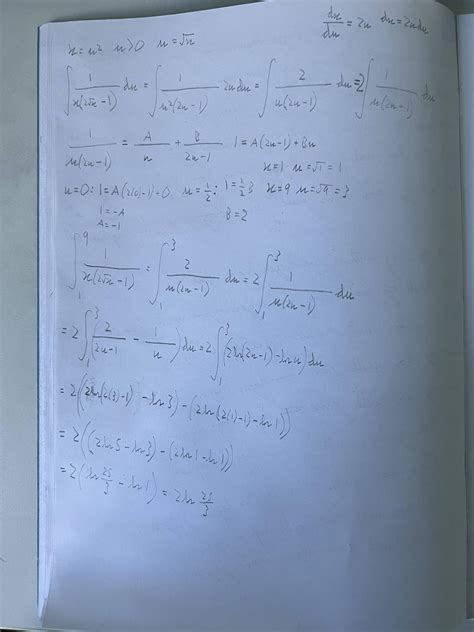 dx/du = 2u   dx = 2u du
x = u²   u>0   u = √x
∫ 1/(x(2√x -1)) dx = ∫ 1/(u²(2u-1)) 2u du = ∫ 2/(u(2u-1)) du = 2∫ 1/(u(2u-1)) du
1/(u(2u-1)) = A/u + B/(2u-1)   1 = A(2u-1) + Bu
x=1   u=√1 = 1
u=0: 1 = A(2(0)-1)+0   u=1/2: 1 = 1/2 B   x=9   u=√9 = 3
1 = -A
A = -1   B = 2
∫₁⁹ 1/(x(2√x -1)) = ∫₁³ 2/(u(2u-1)) du = 2∫₁³ 1/(u(2u-1)) du
= 2∫₁³ (2/(2u-1) - 1/u) du = 2∫₁³ (2ln(2u-1) - ln u) du
= 2((2ln(2(3)-1) - ln3) - (2ln(2(1)-1) - ln1))
= 2((2ln5 - ln3) - (2ln1 - ln1))
= 2(ln 25/3 - ln1) = 2ln 25/3